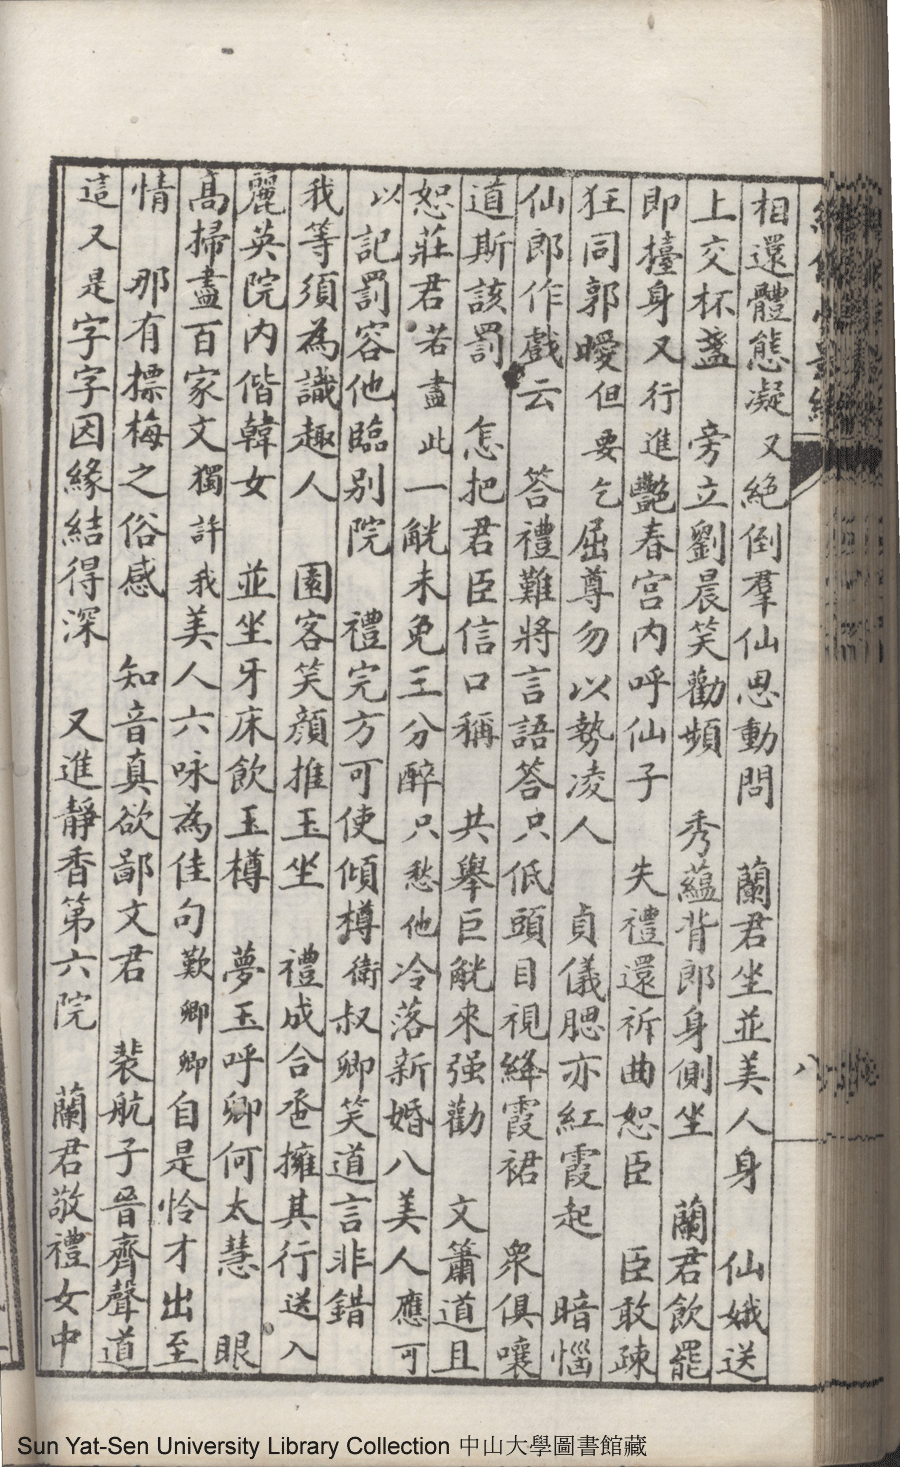 相還體態凝又絕倒羣仙思動問　蘭君坐並美人身　仙娥送
上交杯盞　旁立劉晨笑勸頻　秀蘊背郎身側坐　蘭君飲罷
即檯身又行進艷春宮内呼仙子　失禮還祈曲恕臣　臣敢疎
狂同郭曖但要乞屈尊勿以勢凌人　貞儀腮亦紅霞起　暗惱
仙郎作戲云　答禮難將言語答只低頭目視絳霞裙　衆俱嚷
道斯該罰　怎把君臣信口稱　共舉巨觥來强勸　文簫道且
恕莊君若盡此一觥未免三分醉只愁他冷落新婚八美人應可
以記罰容他臨别院　禮完方可使傾樽衛叔卿笑道言非錯
我等須為識趣人　園客笑顔推玉坐　禮成合卺擁其行送入
麗英院内偕韓女　並坐牙床飲玉樽　夢玉呼卿何太慧　眼
高掃盡百家文獨許我美人六咏為佳句歎卿卿自是怜才出至
情　那有摽梅之俗感　知音真欲鄙文君　裴航子晉齊聲道
這又是字字因緣結得深　又進靜香第六院　蘭君敬禮女中
八
Sun Yat-Sen University Library Collection 中山大學圖書館藏